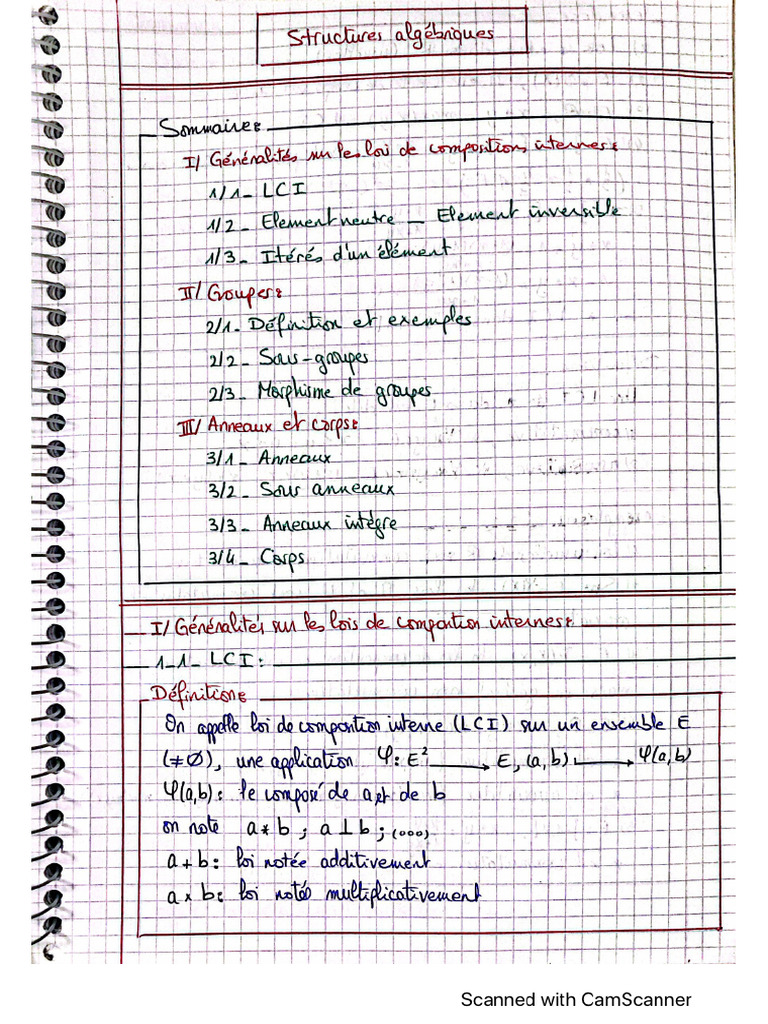 Structures algébriques
Sommaire:
I/ Généralités sur les loi de compositions internes:
1/1_ LCI
1/2_ Element neutre _ Element inversible
1/3_ Itérés d'un élément
II/ Groupes:
2/1_ Définition et exemples
2/2_ Sous-groupes
2/3_ Morphisme de groupes
III/ Anneaux et corps:
3/1_ Anneaux
3/2_ Sous anneaux
3/3_ Anneaux intègre
3/4_ Corps
I/ Généralités sur les lois de composition internes:
1_1_ LCI:
Définition:
On appelle loi de composition interne (LCI) sur un ensemble E
(≠∅), une application φ: E² ⟶ E, (a,b) ⟼ φ(a,b)
φ(a,b): le composé de a et de b
on note a * b ; a ⊥ b ; (ooo)
a + b: loi notée additivement
a × b: loi notée multiplicativement
Scanned with CamScanner